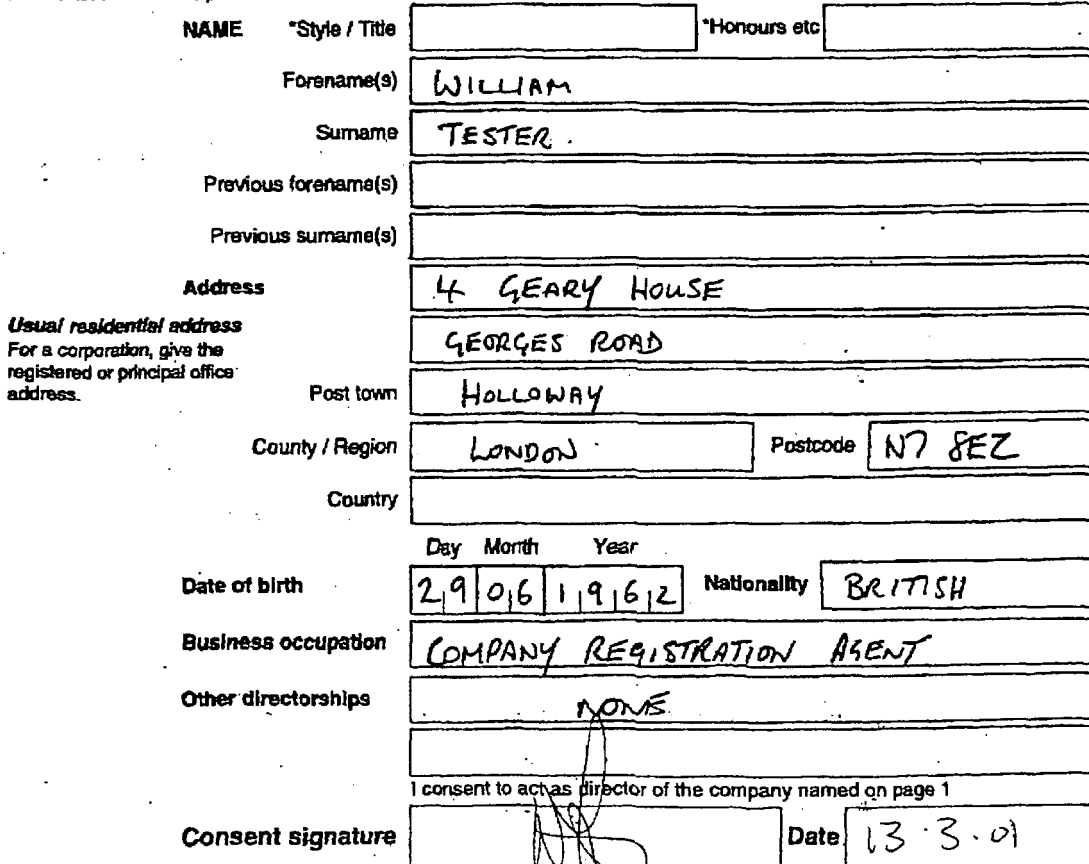 NAME *Style / Title *Honours etc
Forename(s) WILLIAM
Surname TESTER.
Previous forename(s)
Previous surname(s)
Address 4 GEARY HOUSE
Usual residential address
For a corporation, give the
registered or principal office
address.
GEORGES ROAD
Post town HOLLOWAY
County / Region LONDON Postcode N7 8EZ
Country
Day Month Year
Date of birth 29 06 1962 Nationality BRITISH
Business occupation COMPANY REGISTRATION AGENT
Other directorships NONE
I consent to act as director of the company named on page 1
Consent signature Date 13.3.01